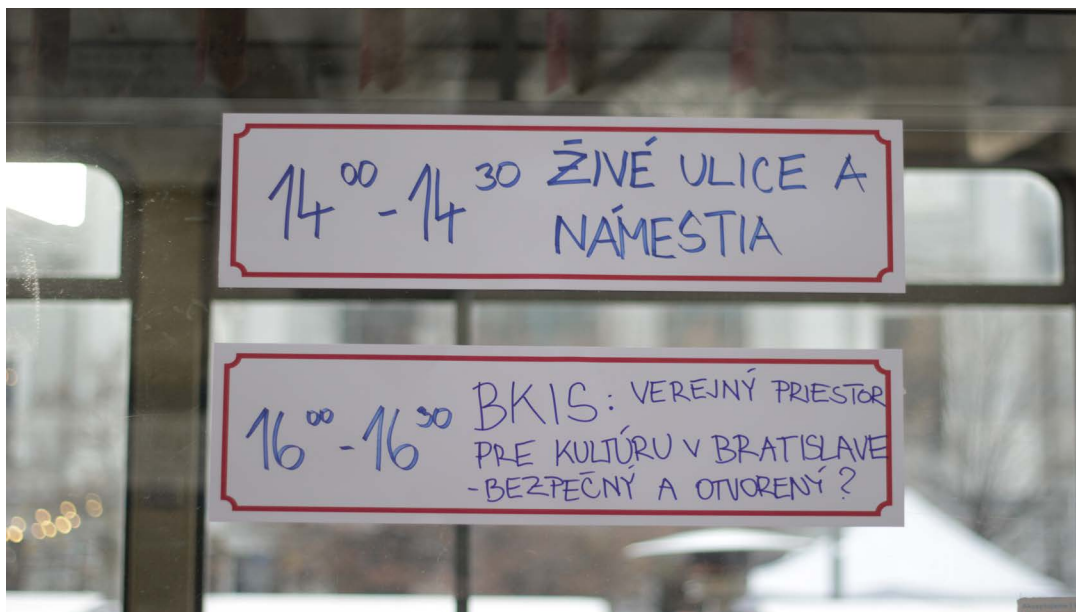 14⁰⁰ - 14³⁰ ŽIVÉ ULICE A
NÁMESTIA
16⁰⁰ - 16³⁰ BKIS: VEREJNÝ PRIESTOR
PRE KULTÚRU V BRATISLAVE
- BEZPEČNÝ A OTVORENÝ?